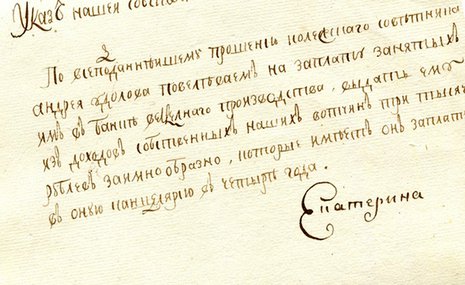 Указъ нашея собст
По всеподданнѣйшему прошенію колежскаго совѣтника
андрея повелѣваемъ на заплату занятыхъ
имъ въ банкѣ производства, выдать ему
изъ доходовъ собственныхъ нашихъ вотчинъ три тысяч
рублевъ заимнообразно, которые имѣетъ онъ заплат
въ оную канцелярїю в четыре года.
Екатерина